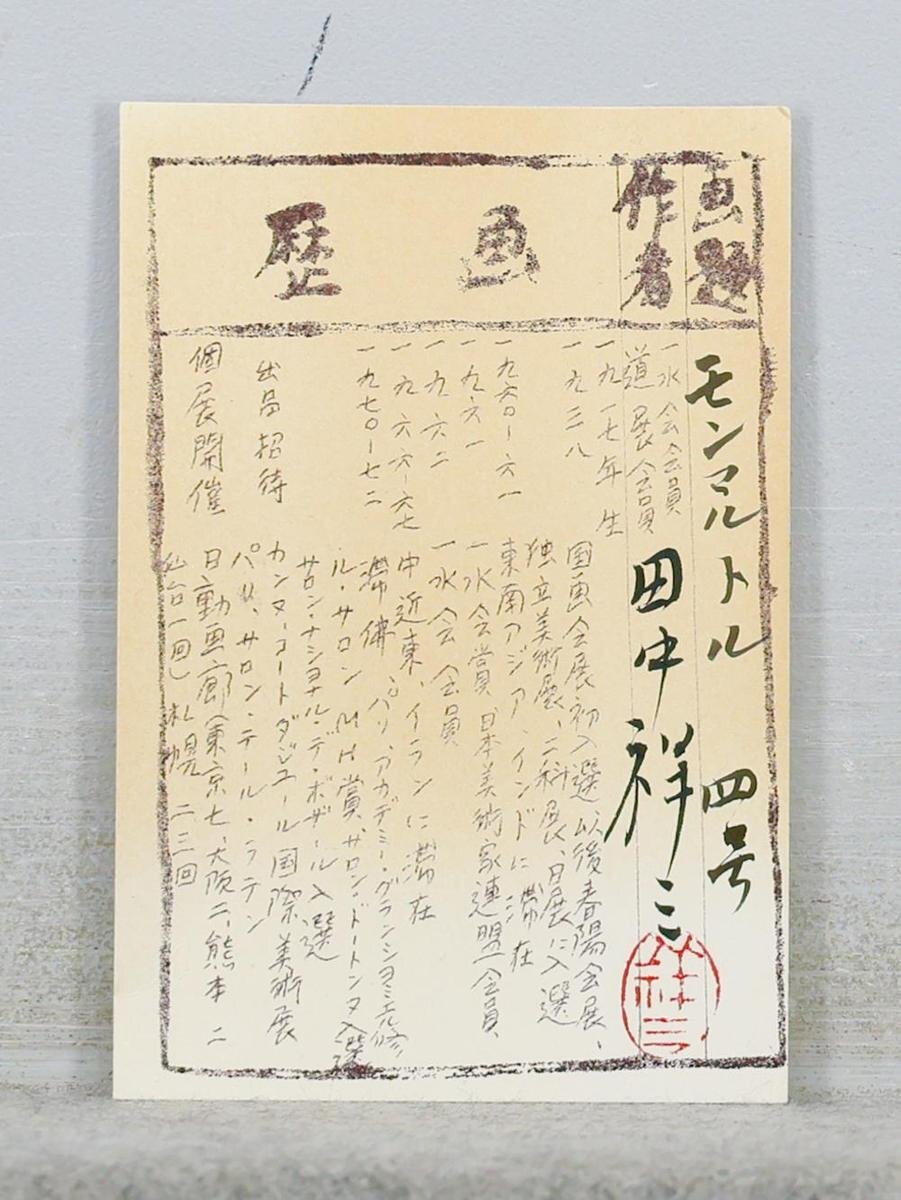 画題
モンマルトル 四号
作者
田中祥三
祥三
画歴
一水会会員
道展会員
一九一七年生
一九三八 国画会展初入選以後春陽会展、
独立美術展、二科展、日展に入選
一九六〇－六一 東南アジア、インドに滞在
一九六一 一水会賞、日本美術家連盟会員、
一九六二 一水会会員
一九六六－六七 中近東、イランに滞在
一九七〇－七二 滞佛、パリ、アカデミー・グランショミエル修
ル・サロン MH賞、サロン・ドートンヌ入選
サロン・ナショナル・デ・ボザール入選
出品招待 カンヌ・コートダジュール国際美術展
パリ、サロン・テール・ラテン
個展開催 日動画廊(東京七、大阪二、熊本二
仙台一回)札幌 二三回